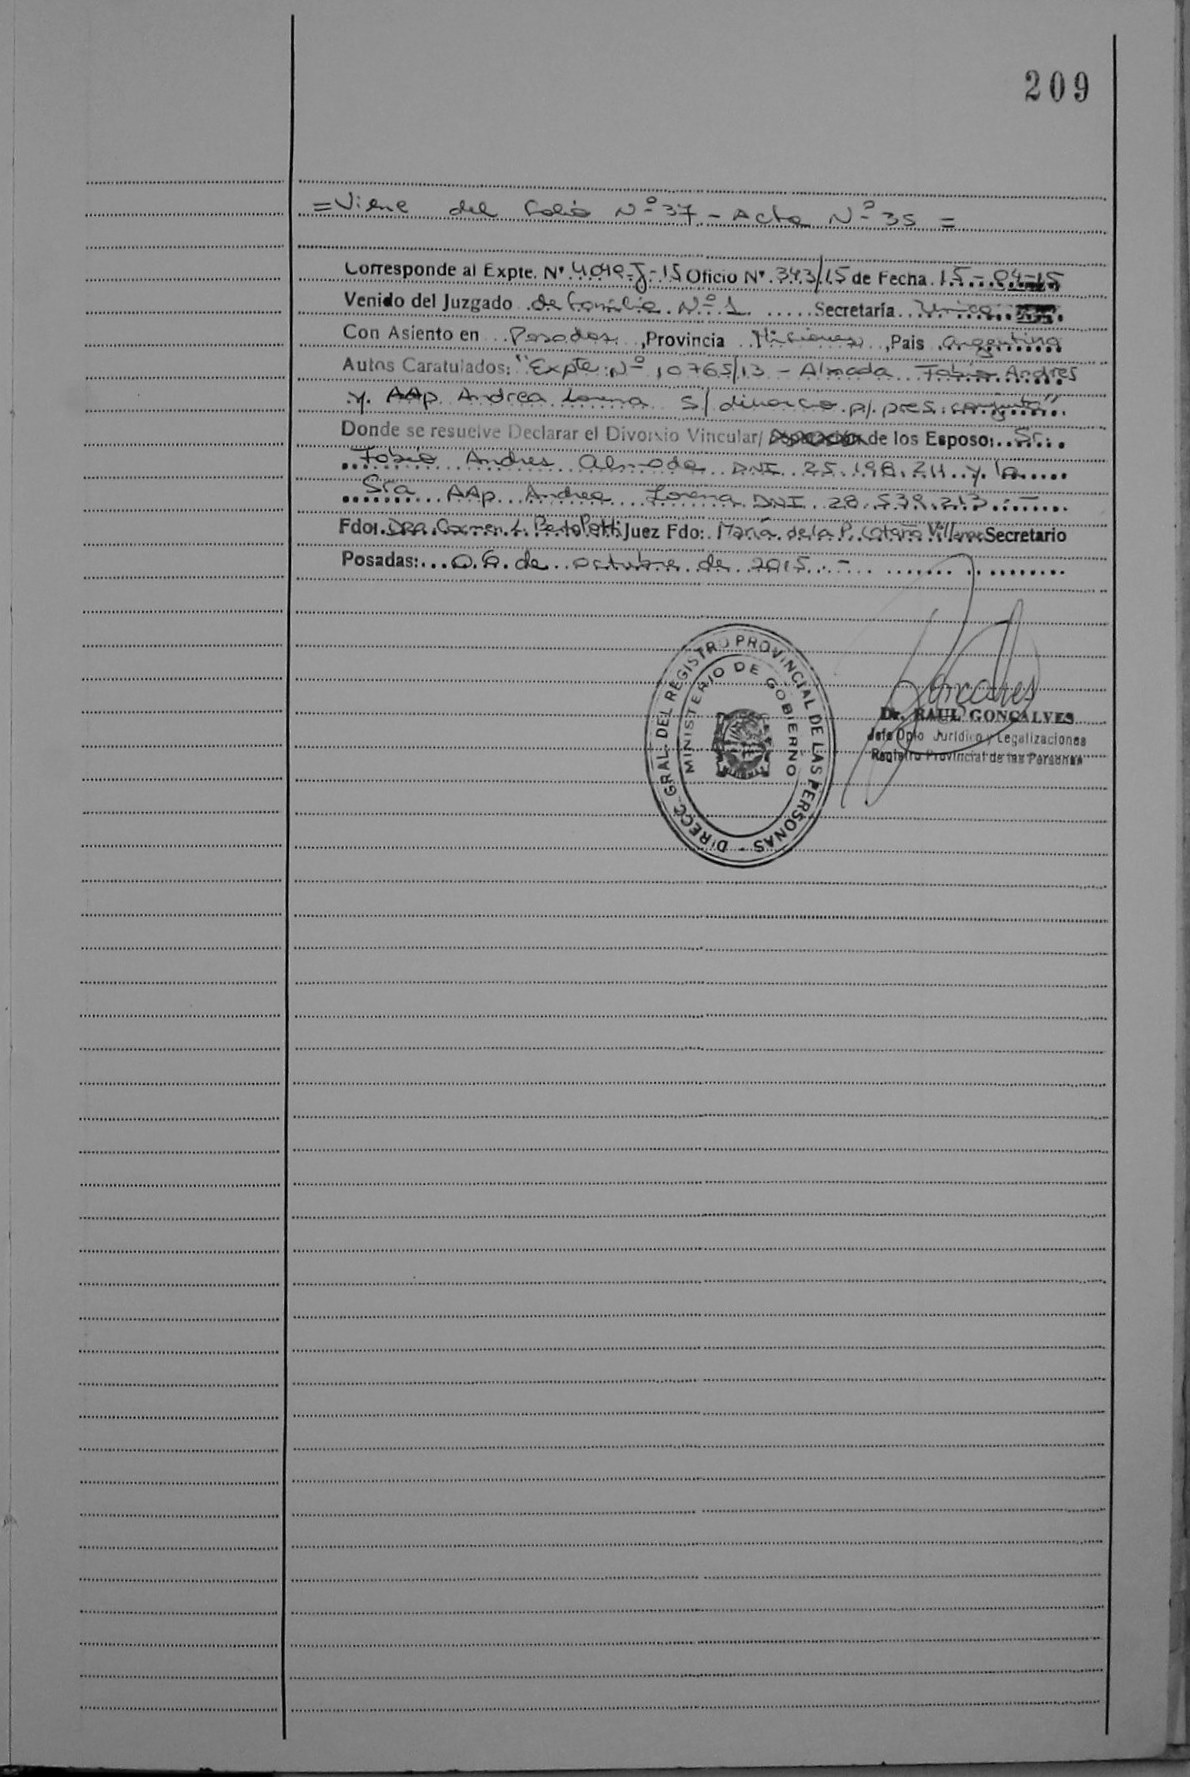 209
= Viene del Folio Nº 37 - Acta Nº 35 =
Corresponde al Expte. Nº 4019-J-15 Oficio Nº 343/15 de Fecha 15-04-15
Venido del Juzgado de Familia Nº 1 Secretaría Unica
Con Asiento en Posadas, Provincia Misiones, Pais Argentina
Autos Caratulados: "Expte. Nº 10765/13 - Almada Fabio Andres
y AAp Andrea Lorena s/ divorcio p/ pres. conjunta"
Donde se resuelve Declarar el Divorcio Vincular/ de los Esposo: Sr.
Fabio Andres Almada DNI 25.198.211 y la
Sra AAp Andrea Lorena DNI 28.539.213.-
Fdo: DRA. Carmen L. Bertolotti Juez Fdo: María de la P. Secretario
Posadas: de octubre de 2015.-
Dr. RAUL GONÇALVES
Jefe Dpto Jurídico y Legalizaciones
Registro Provincial de las Personas
DIRECC. GRAL. DEL REGISTRO PROVINCIAL DE LAS PERSONAS -
MINISTERIO DE GOBIERNO